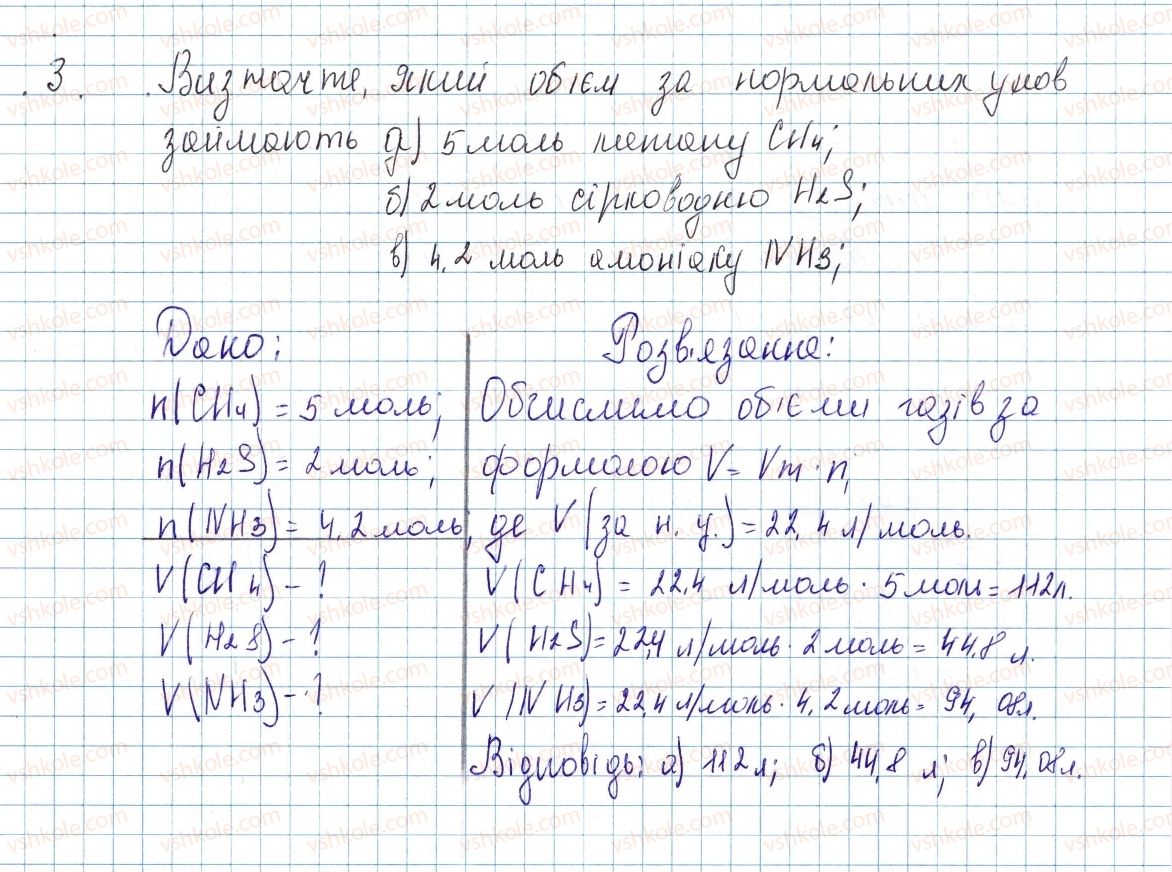 3. Визначте, який об'єм за нормальних умов
займають а) 5 моль метану CH4;
б) 2 моль сірководню H2S;
в) 4,2 моль амоніаку NH3;
Дано:
n(CH4) = 5 моль;
n(H2S) = 2 моль;
n(NH3) = 4,2 моль;
V(CH4) - ?
V(H2S) - ?
V(NH3) - ?
Розв'язання:
Обчислимо об'єми газів за
формолою V = Vm · n,
де V (за н. у.) = 22,4 л/моль.
V(CH4) = 22,4 л/моль · 5 моль = 112 л.
V(H2S) = 22,4 л/моль · 2 моль = 44,8 л.
V(NH3) = 22,4 л/моль · 4,2 моль = 94,08 л.
Відповідь: а) 112 л; б) 44,8 л; в) 94,08 л.
vshkole.com